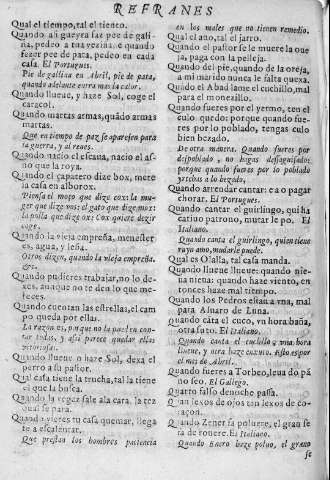 REFRANES
Qual el tiempo, tal el tiento.
Quando la gueyea faz pee de galina, pedro a tua vezina, e quando fezer pee de pata, pedeo en cada casa. El Portugues.
Pie de gallina en Abril, pie de pata,
Quando llueue, y haze Sol, coge el
caracol.
Quando martas armas, quãdo armas
martas.
Que en tiempo de paz se aparejen para
la guerra, y al reues.
Quando nacio el escana, nacio el asno que la roya.
Quando el çapatero dize box, mete
la casa en alborox.
Quando la vieja empreña, menester
es, agua, y leña.
Otros dizen, quando la vieja empreña.
Quando pudieres trabajar, no lo dexes, aunque no te den lo que mereces.
Quando cuentan las estrellas, el campo queda por ellas.
La razon es, porque no la puelen contar todas, y assi parece quedar ellas
vitoriosas.
Quando llueue o haze Sol, dexa el
perro a su pastor.
Qual casa tiene la trucha, tal la tiene
el que la busca.
Quando la vegez sale ala cara, la tez
qual se para.
Quando vieres tu casa quemar, llega
te a escalentar.
Que prestan los hombres paciencia
en los males que no tienen remedio.
Qual el año, tal el jarro.
Quando el pastor se le muere la oueja, paga con la pelleja.
Quando del pie, quando de la oreja,
a mi marido nunca le falta quexa.
Quãdo el Abad lame el cuchillo, mal
para el monezillo.
Quando fueres por el yermo, ten el
culo quedo: porque quando fueres por lo poblado, tengas culo
bien bezado.
De otra manera. Quando fueres por
despoblado, no hagas desaguisado:
porque quando fueres por lo poblado
yràs a lo bezado.
Quando arrendar cantar: ea o pagar
chorar. El Portugues.
Quando cantar el guirlingo, qui ha
catiuo patrono, mutar le po. El
Italiano.
Quando canta el guirlingo, quien tiene
ruyn amo, mudarle puede.
Qual es Olalla, tal casa manda.
Quando llueue llueue: quando nieua nieua: quando haze viento, entonces haze mal tiempo.
Quando los Pedros estan a vna, mal
para Aluaro de Luna.
Quando canta el cuco, vn hora bañà,
otra suto. El Italiano.
Quando canta el cuchillo, vna hora
llueue, y otra haze enxuto. Esto es por
el mes de Abril.
Quando fueres a Torbeo, leua do pá
no seo. El Gallego.
Quarto falso denoche passa.
Quan lexos de ojos tan lexos de coraçon.
Quando Zener fa poluere, el gran se
fa de rouere. El Italiano.
Quando Enero haze poluo, el grano
se